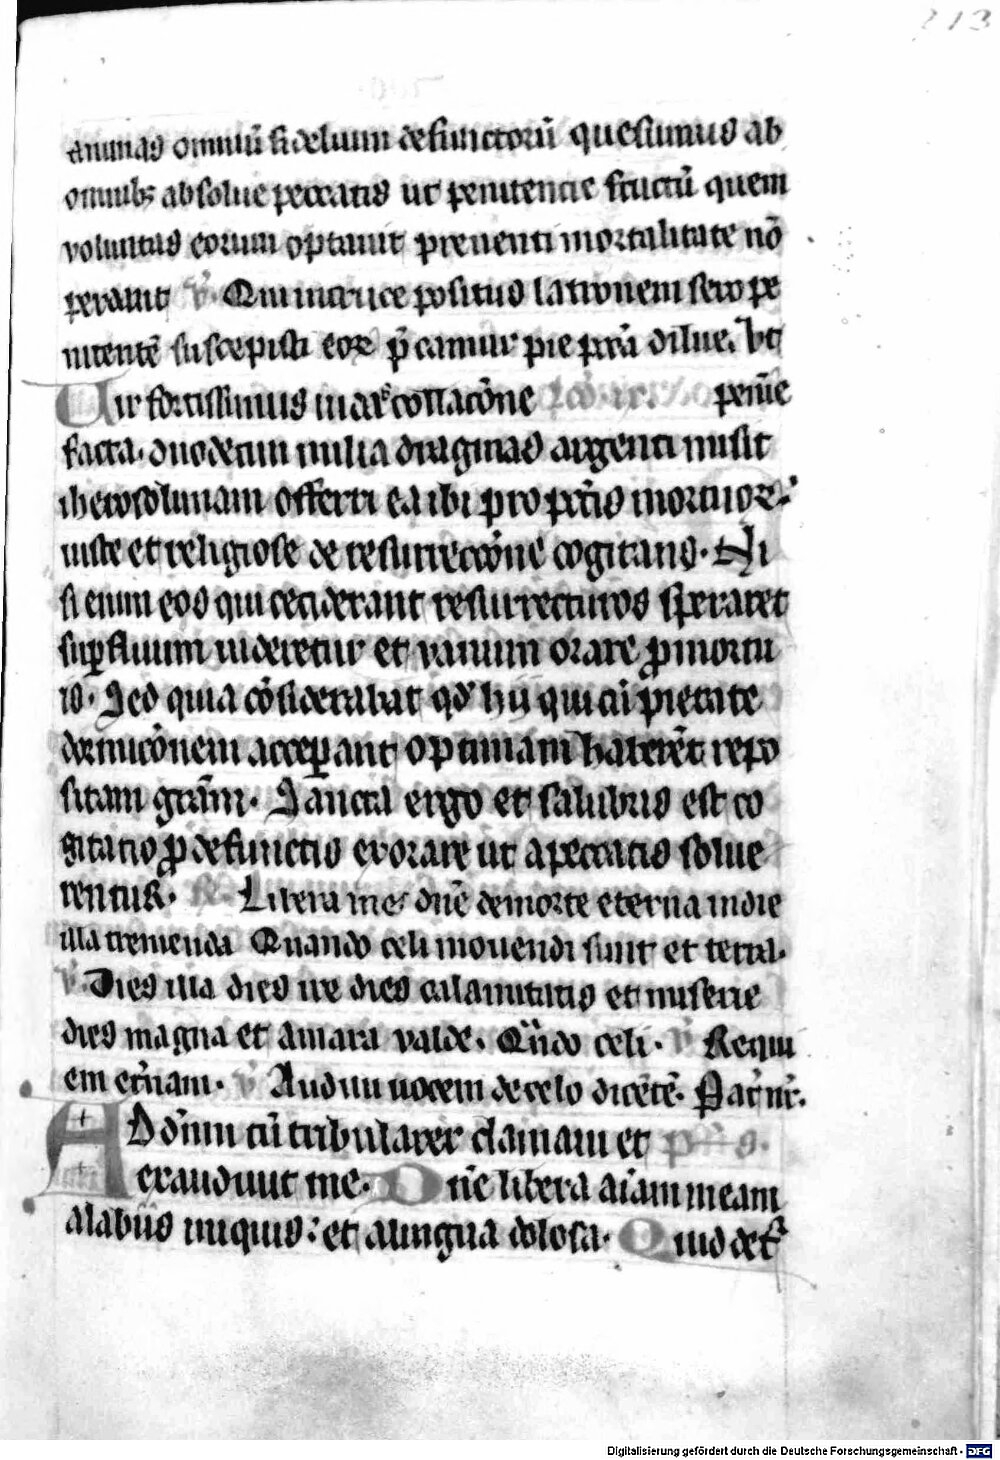 213
animas omniū fidelium defunctorū quesumus ab
omnibꝫ absolue peccatis ut penitencie fructū quem
voluntas eorum optauit preuenti mortalitate nō
perdant ℣. Qui in cruce positus latronem sero pe
nitentē suscepisti eoꝝ p̄camur pie pctā dilue. Vt
Uir fortissimus iudas collacōne lcō. ix. penīe
facta. duodecim milia dragmas argenti misit
iherosolimam offerri ea ibi pro pctīs mortuoꝝ.
iuste et religiose de resurreccōne cogitans. Ni
si enim eos qui ceciderant resurrecturos speraret
suꝑfluum uideretur et vanum orare ꝓ mortu
is. Sed quia cōsiderabat qd' hij qui cū pietate
dormicōnem acceꝑant optimam haberēt repo
sitam grām. Sancta ergo et salubris est co
gitatio ꝓ defunctis exorare ut a peccatis solue
rentur. ℟. Libera me dn̄e de morte eterna in die
illa tremenda Quando celi mouendi sunt et terra.
℣. Dies illa dies ire dies calamitatis et miserie
dies magna et amara valde. Qn̄do celi. ℣. Requi
em et'nam. ℣. Audiui uocem de celo dicētē. Pat' nr̄.
AD dn̄m cū tribularer clamaui et ps.
exaudiuit me. Dn̄e libera aīam meam
a labiis iniquis: et a lingua dolosa. Quid det'
Digitalisierung gefördert durch die Deutsche Forschungsgemeinschaft - DFG